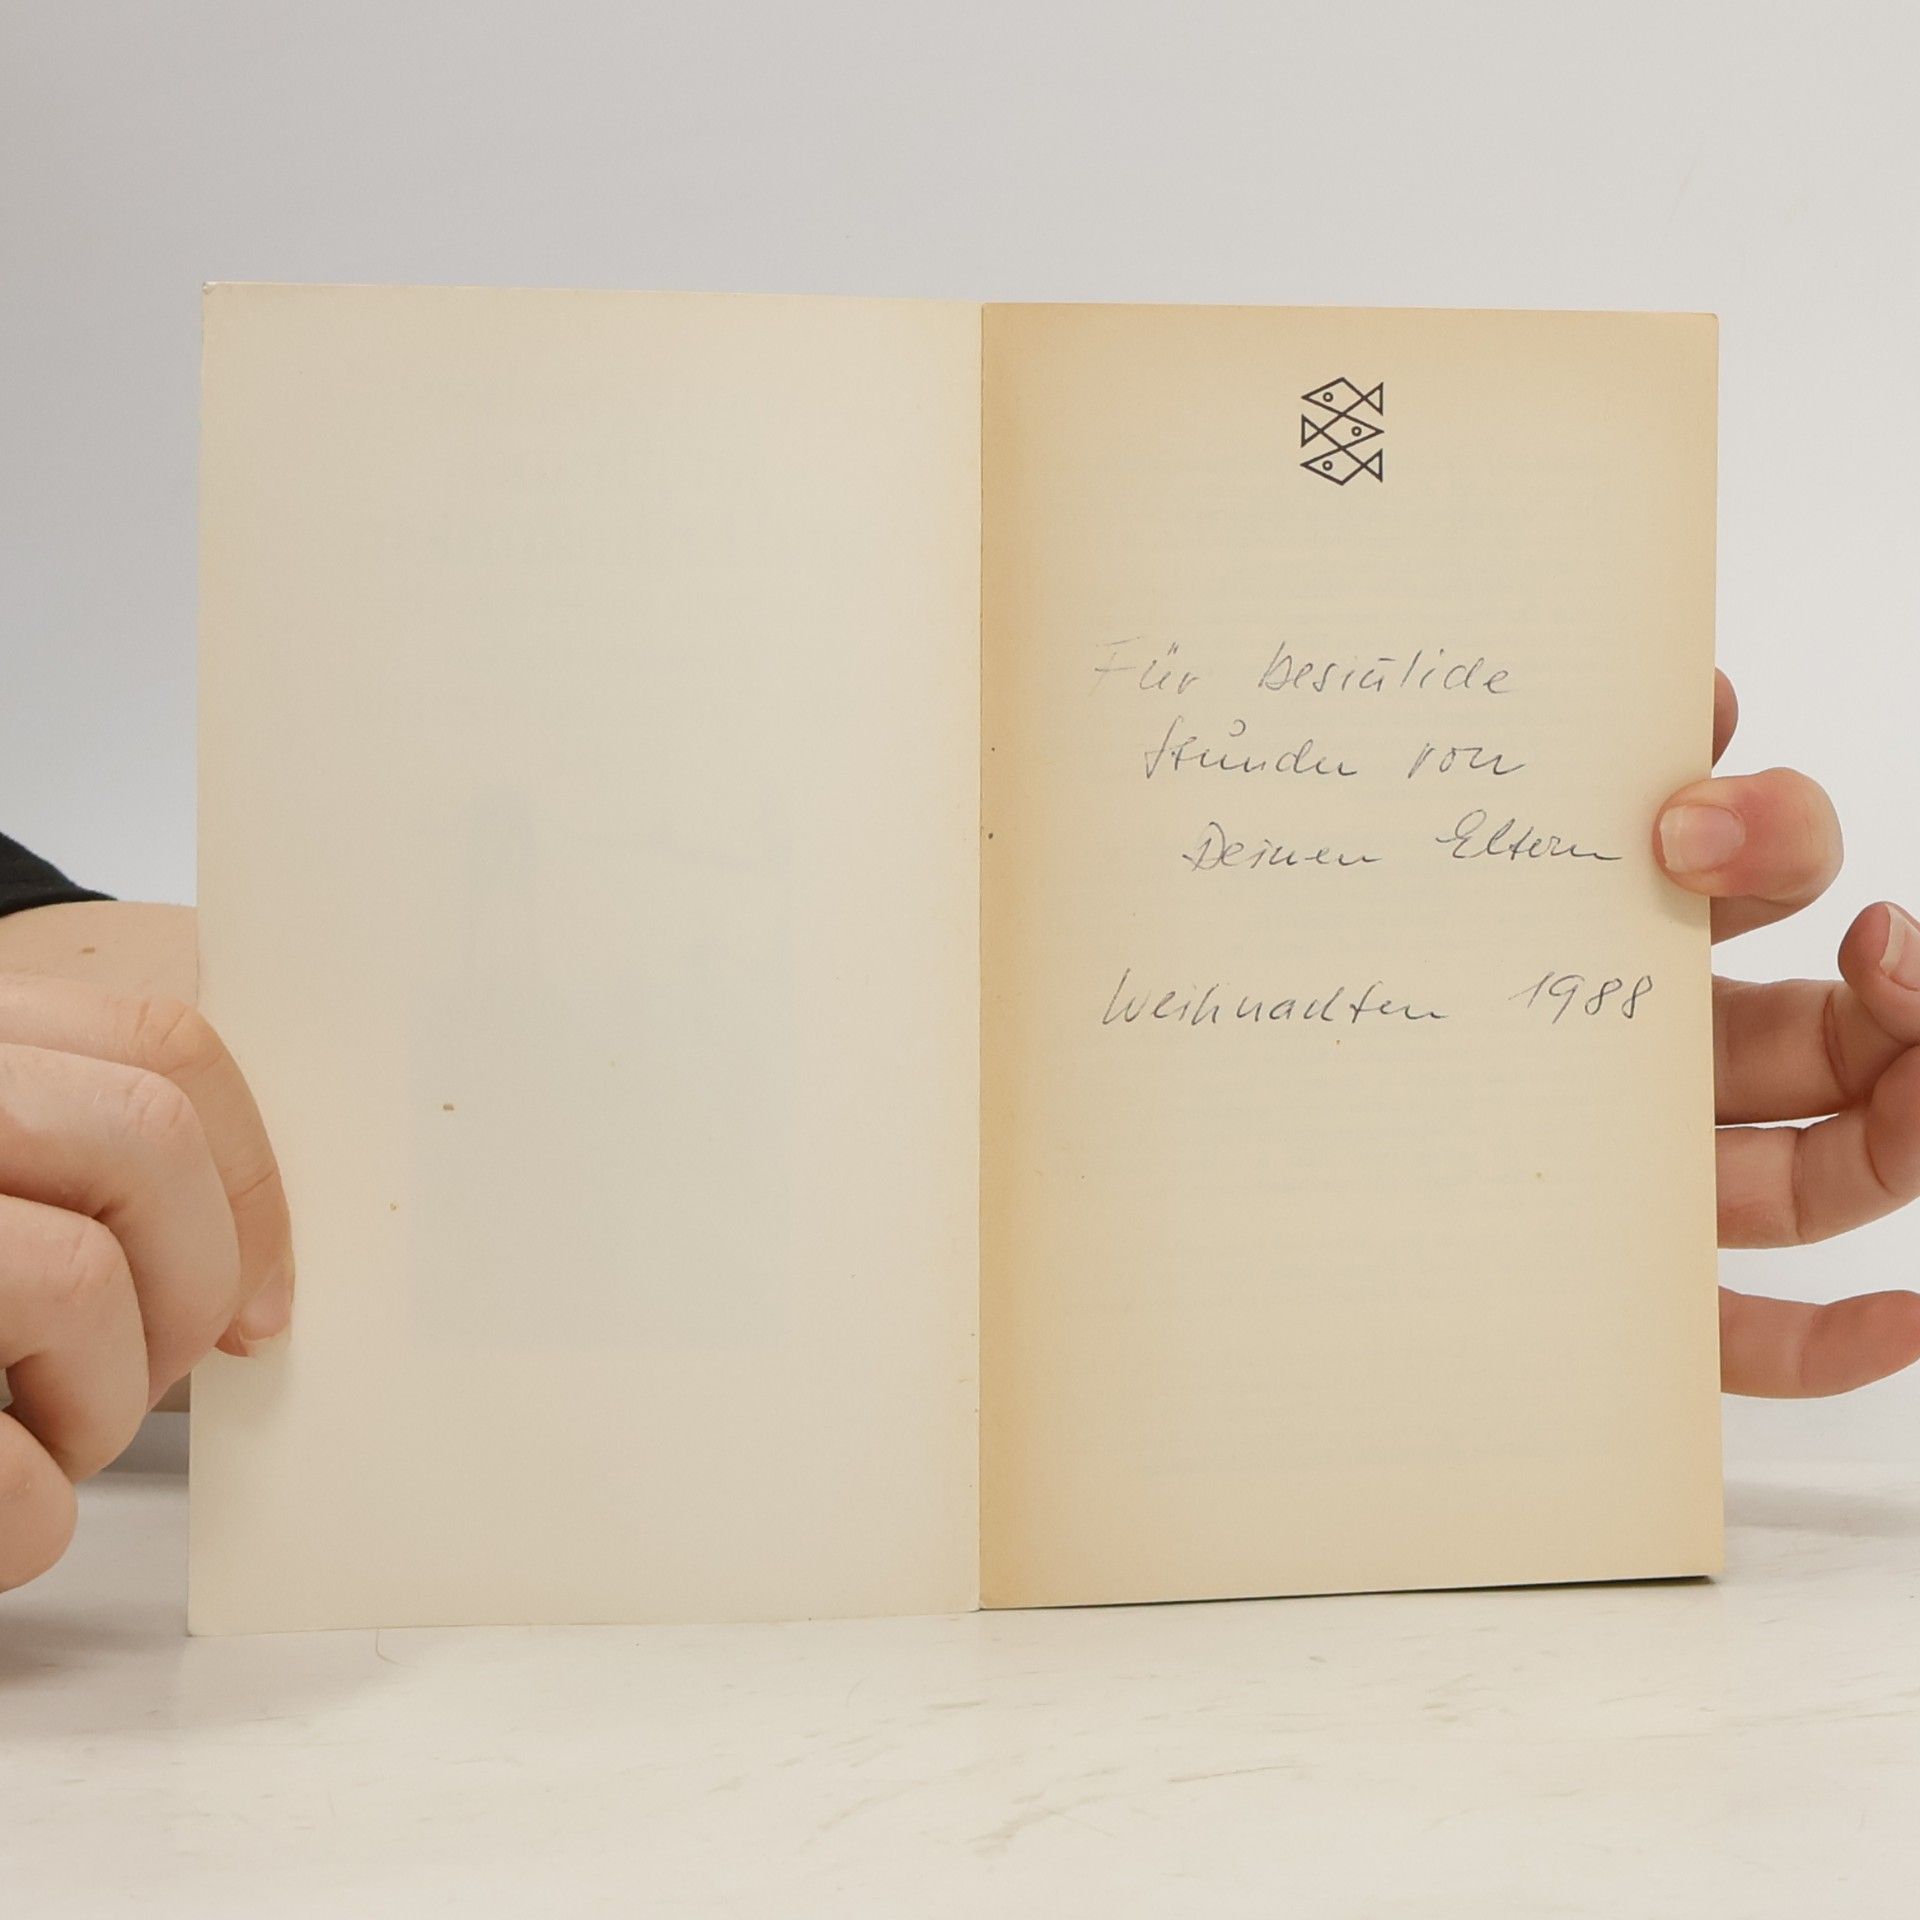 Für besinnliche
Stunden von
Deinen Eltern
Weihnachten 1988